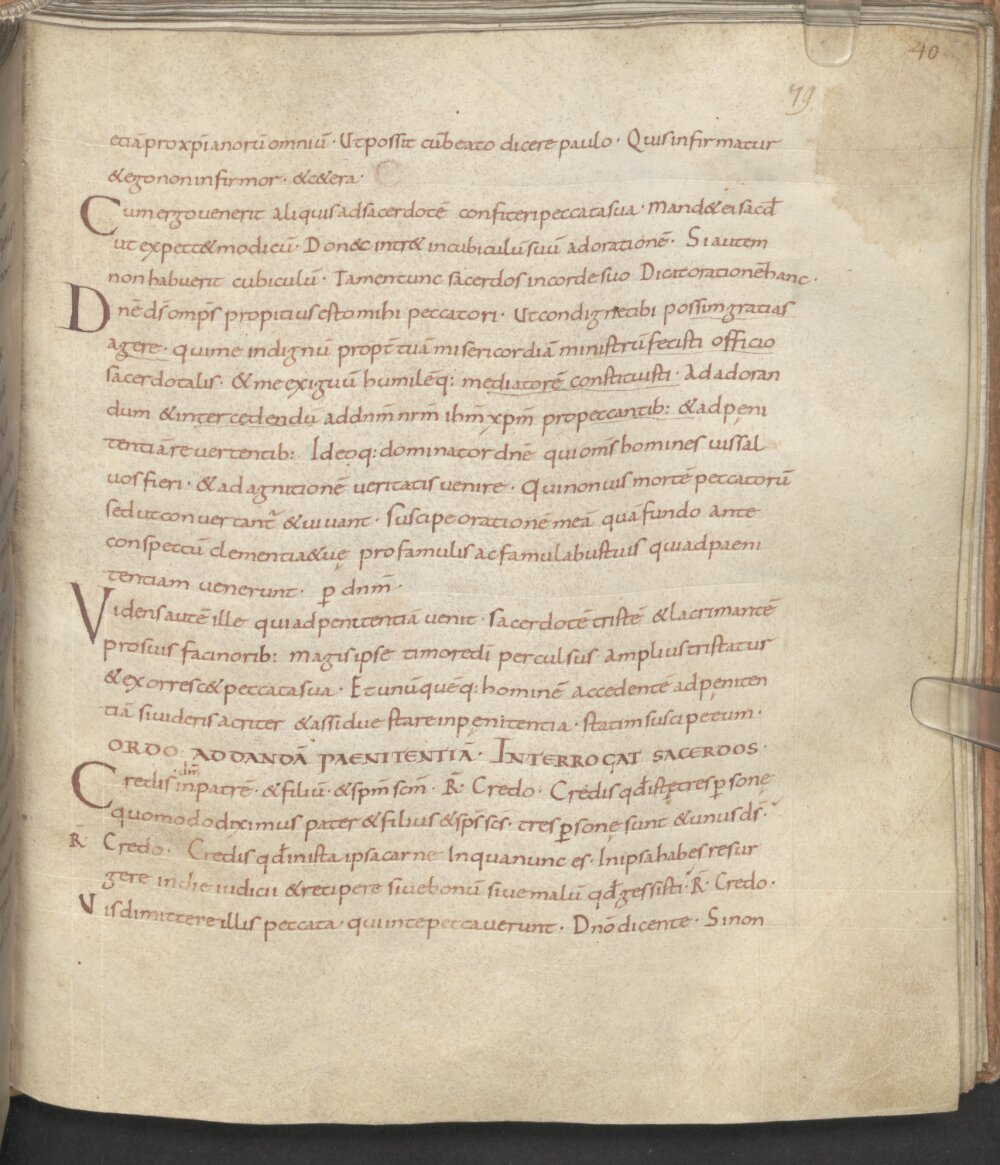 40
79
etiā pro xpianorū omniū · Ut possit cū beato dicere paulo · Quis infirmatur
& ego non infirmor · & c&era ·
Cum ergo venerit aliquis ad sacerdotē confiteri peccata sua · mand& ei sacđ
ut expect& modicū · Donec intr& in cubiculū suū ad orationē · Si autem
non habuerit cubiculū · Tamen tunc sacerdos in corde suo Dicat orationē hanc ·
Dnē ds̄ omp̄s propitius esto mihi peccatori · Ut condigne tibi possim gratias
agere · qui me indignū propt̄ tuā misericordiā ministrū fecisti officio
sacerdotalis · & me exiguū humilēq: mediatorē constituisti · Ad adoran
dum & intercedendū ad dnm̄ nrm̄ ihm̄ xpm̄ pro peccantib: & ad pęni
tentiā revertentib: Ideoq: dominator dnē qui oms̄ homines vis sal
vos fieri · & ad agnitionē veritatis venire · Qui non vis mortē peccatorū
sed ut convertant̄ & vivant · suscipe orationē meā quā fundo ante
conspectū clementiae tuę pro famulis ac famulabus tuis qui ad paeni
tentiam venerunt · ꝑ dnm̄ ·
Videns autē ille qui ad penitentiā venit · sacerdotē tristē & lacrimantē
pro suis facinorib: magis ipse timore dī perculsus · amplius tristatur
& exorresc& peccata sua · Et unūquēq: hominē accedentē ad pęniten
tiā si videris acriter & assidue stare in pęnitentia · statim suscipe eum ·
ORDO AD DANDĀ PAENITENTIĀ · INTERROGAT SACERDOS ·
Credis in dm̄ patrē · & filiū · & spm̄ scm̄ · R̄ · Credo · Credis qđ istę tres ꝑsonę
quomodo diximus pater & filius & sps̄ scs̄ · tres ꝑsonę sunt & unus ds̄ ·
R̄ · Credo · Credis qđ in ista ipsa carne In qua nunc es · In ipsa habes resur
gere in die iudicii & recipere sive bonū sive malū qđ gessisti · R̄ · Credo ·
Vis dimittere illis peccata · qui in te peccaverunt · Dnō dicente · Si non